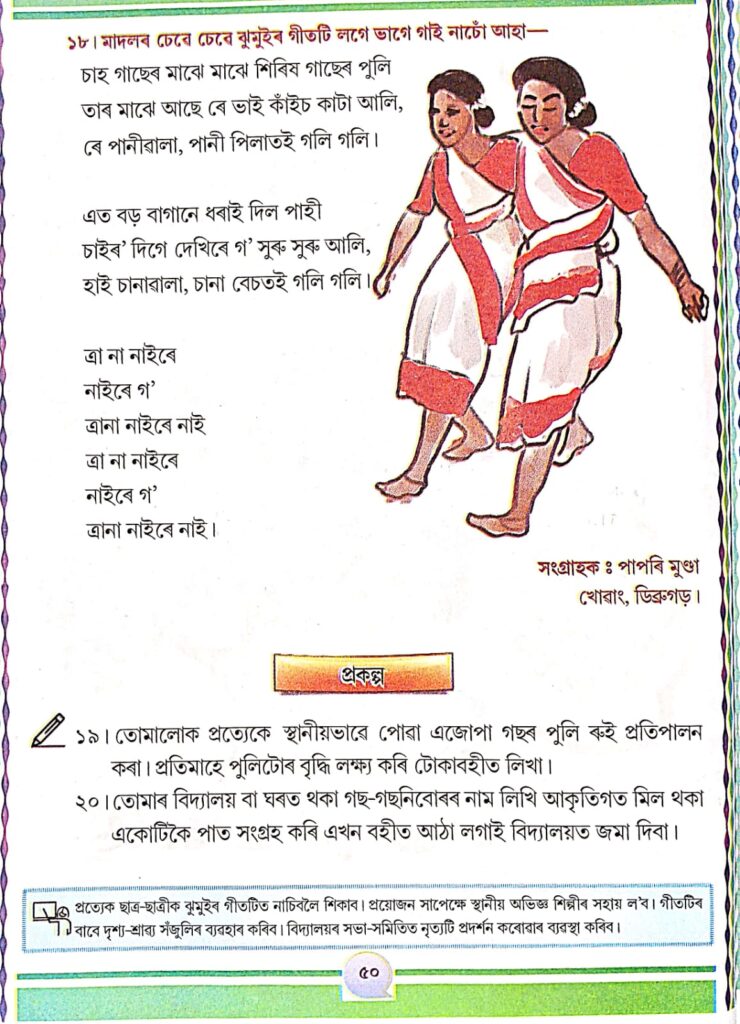 ১৮। মাদলৰ চেৱে চেৱে ঝুমুইৰ গীতটি লগে ভাগে গাই নাচোঁ আহা—
চাহ গাছেৰ মাঝে মাঝে শিৰিষ গাছেৰ পুলি
তাৰ মাঝে আছে ৰে ভাই কাঁইচ কাটা আলি,
ৰে পানীৱালা, পানী পিলাতই গলি গলি।
এত বড় বাগানে ধৰাই দিল পাহী
চাইৰ’ দিগে দেখিৰে গ’ সুৰু সুৰু আলি,
হাই চানাৱালা, চানা বেচতই গলি গলি।
ত্ৰা না নাইৰে
নাইৰে গ’
ত্ৰানা নাইৰে নাই
ত্ৰা না নাইৰে
নাইৰে গ’
ত্ৰানা নাইৰে নাই।
সংগ্ৰাহক ঃ পাপৰি মুণ্ডা
খোৱাং, ডিব্ৰুগড়।
প্ৰকল্প
১৯। তোমালোক প্ৰত্যেকে স্থানীয়ভাৱে পোৱা এজোপা গছৰ পুলি ৰুই প্ৰতিপালন
কৰা। প্ৰতিমাহে পুলিটোৰ বৃদ্ধি লক্ষ্য কৰি টোকাবহীত লিখা।
২০। তোমাৰ বিদ্যালয় বা ঘৰত থকা গছ-গছনিবোৰৰ নাম লিখি আকৃতিগত মিল থকা
একোটিকৈ পাত সংগ্ৰহ কৰি এখন বহীত আঠা লগাই বিদ্যালয়ত জমা দিবা।
প্ৰত্যেক ছাত্ৰ-ছাত্ৰীক ঝুমুইৰ গীতটিত নাচিবলৈ শিকাব। প্ৰয়োজন সাপেক্ষে স্থানীয় অভিজ্ঞ শিল্পীৰ সহায় ল’ব। গীতটিৰ
বাবে দৃশ্য-শ্ৰাব্য সঁজুলিৰ ব্যৱহাৰ কৰিব। বিদ্যালয়ৰ সভা-সমিতিত নৃত্যটি প্ৰদৰ্শন কৰোৱাৰ ব্যৱস্থা কৰিব।
৫০